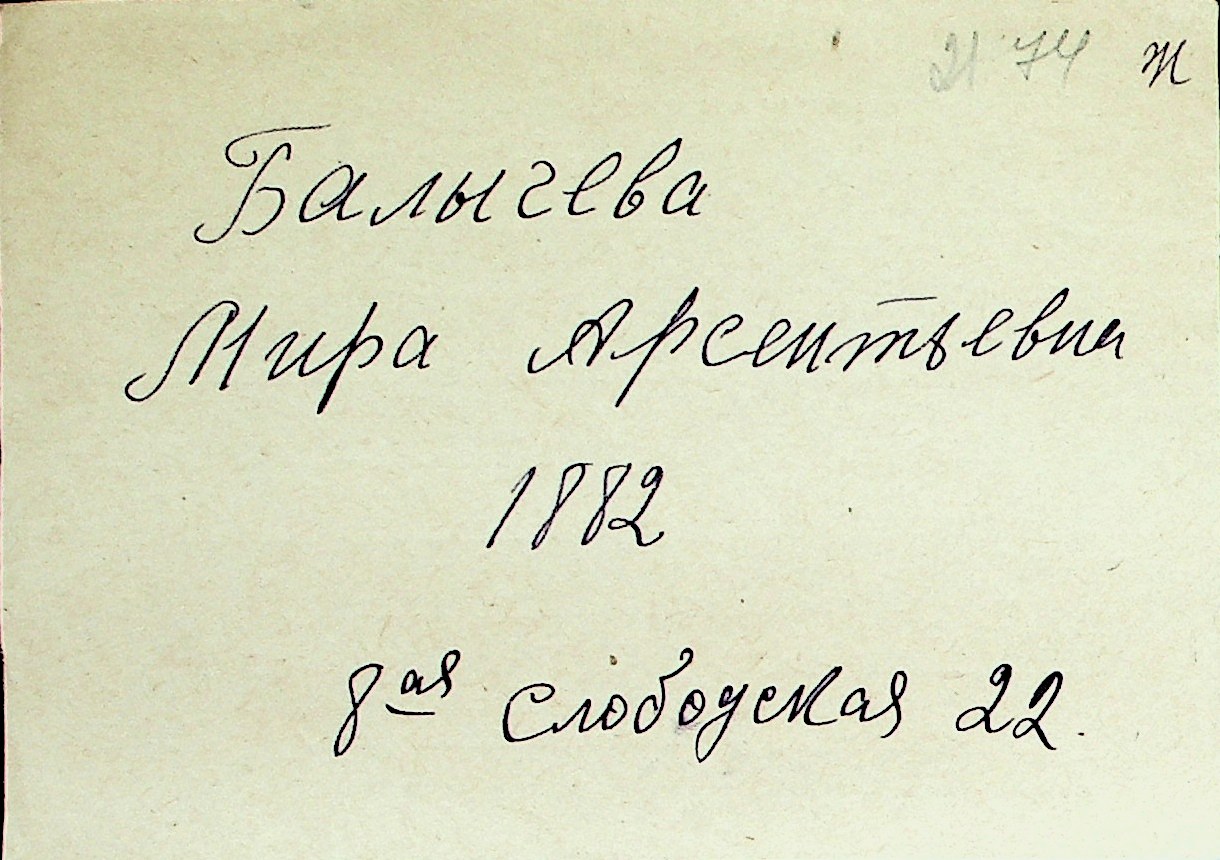 21 74 ж
Балычева
Мира Арсентьевна
1882
8ая слободская 22.